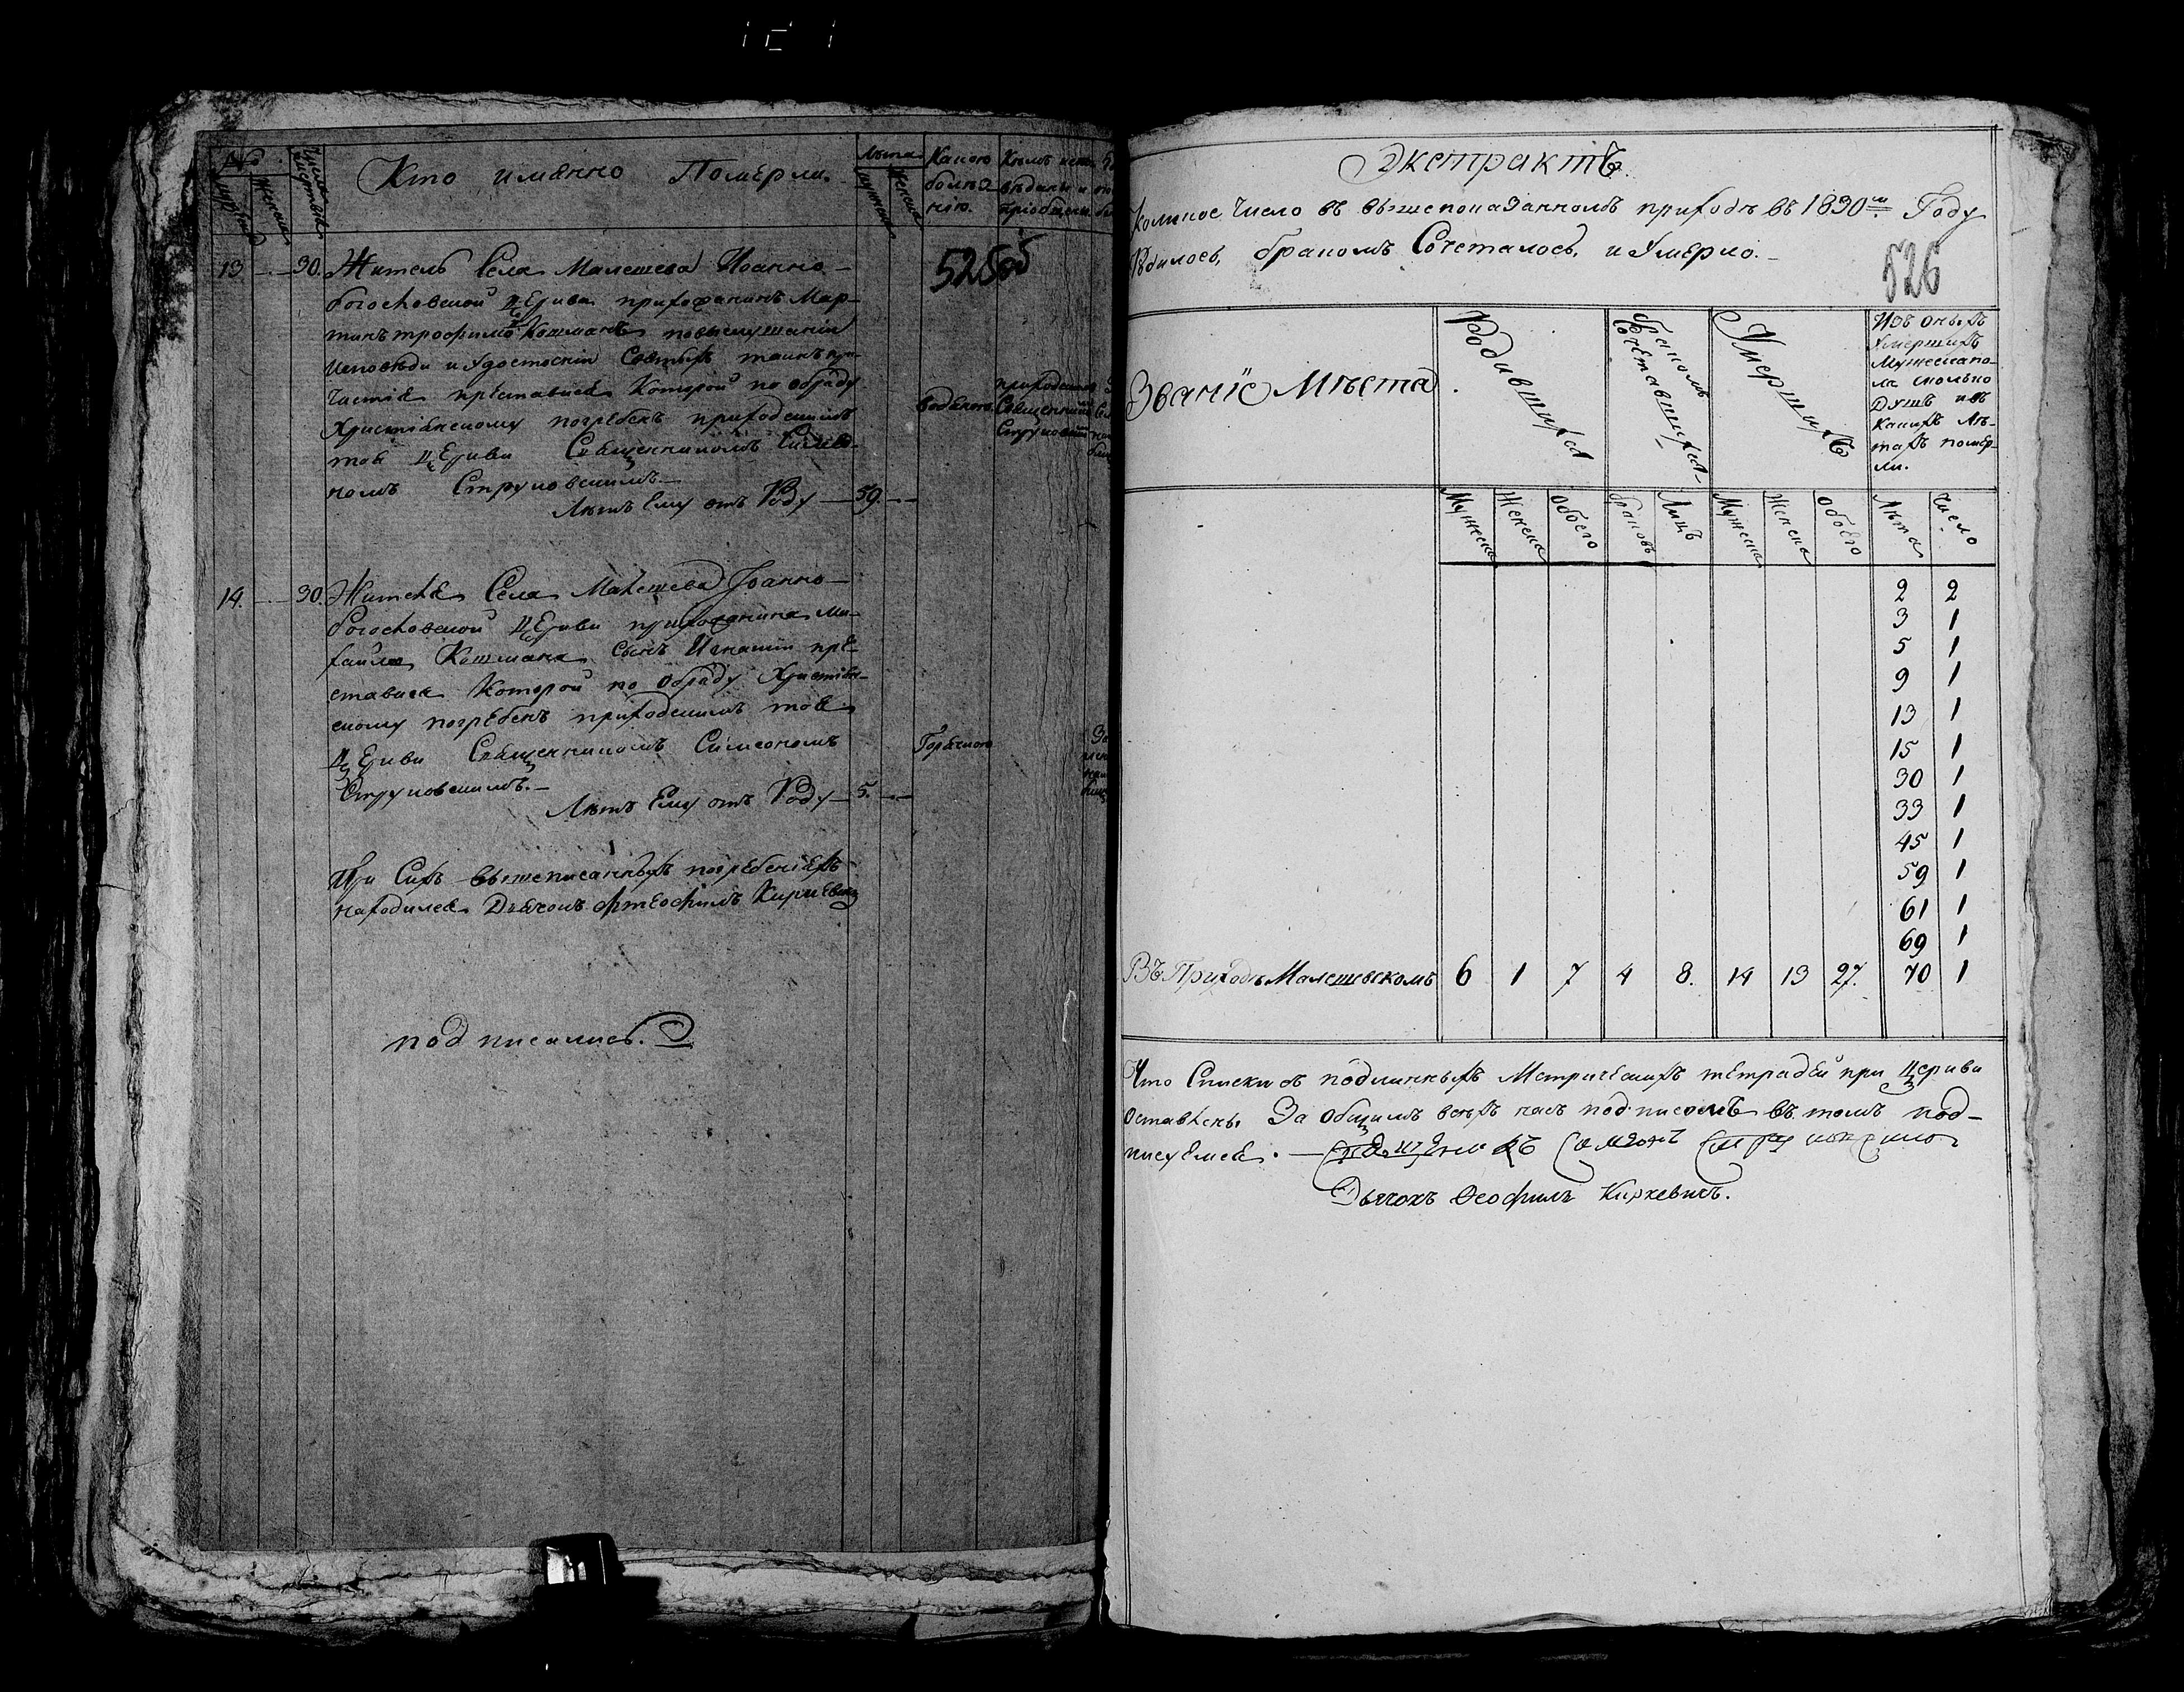 №
Мужеска
Женска
Числа смертей
Кто имянно Померли.
Лета
Мужеска
Женска
Какою
болѣз
нію.
Кѣмъ испо
вѣданы и
пріобщены
13 — — 30. Житель Села Малешева Иоанно-
богословской Церкви прихожанинъ Мар-
тинъ трофимо Кошманъ повыслушаніи
исповѣди и удостоеніи Святыхъ таинъ при-
частія преставися Которой по обряду
Христіянскому погребенъ приходскимъ
тоя Церкви Священникомъ Симео-
номъ Струковскимъ.—
Лѣтъ Ему отъ Роду — 59. —
Водяною
приходским
Священник
Струковски
525
14. — 30. Жителя Села Малешева Іоанно-
богословской Церкви прихожанина Ми-
хайла Кошмана сынъ Игнатій пре-
ставися Которой по Обряду Христіян-
скому погребенъ приходскимъ тоя
Церкви Священникомъ Симеономъ
Струковскимъ.—
Лѣтъ Ему отъ Роду — 5. —
Горячкою
При Сихъ вышеписанныхъ погребеніяхъ
находился Дьячокъ Фтеофилъ Киркевичъ
подписались.
Экстрактъ.
Коликое Число въ вышепоказанномъ приходѣ въ 1830м Году
Родилось, бракомъ Сочеталось, и Умерло.—
526
Званіе Мѣста
Родившихся
бракомъ
Сочетавшихся
Умершихъ
Изъ оныхъ
Умершихъ
Мужеска по-
ла сколько
Душъ и въ
Какихъ Лѣ-
тахъ помер-
ли.
Мужеска Женска Обоего браковъ Лицъ Мужеска Женска Обоего Лѣта Число
2 2
3 1
5 1
9 1
13 1
15 1
30 1
33 1
45 1
59 1
61 1
69 1
Въ Приходѣ Малешевскомъ 6 1 7 4 8. 14 13 27. 70 1
Что Списки съ подлинныхъ Метрическихъ тетрадей при Церкви
Оставлены За Общимъ всѣхъ насъ подписомъ въ томъ под-
писуемся. — Священникъ Симеон
Дьячокъ Ѳеофилъ Киркевичъ.